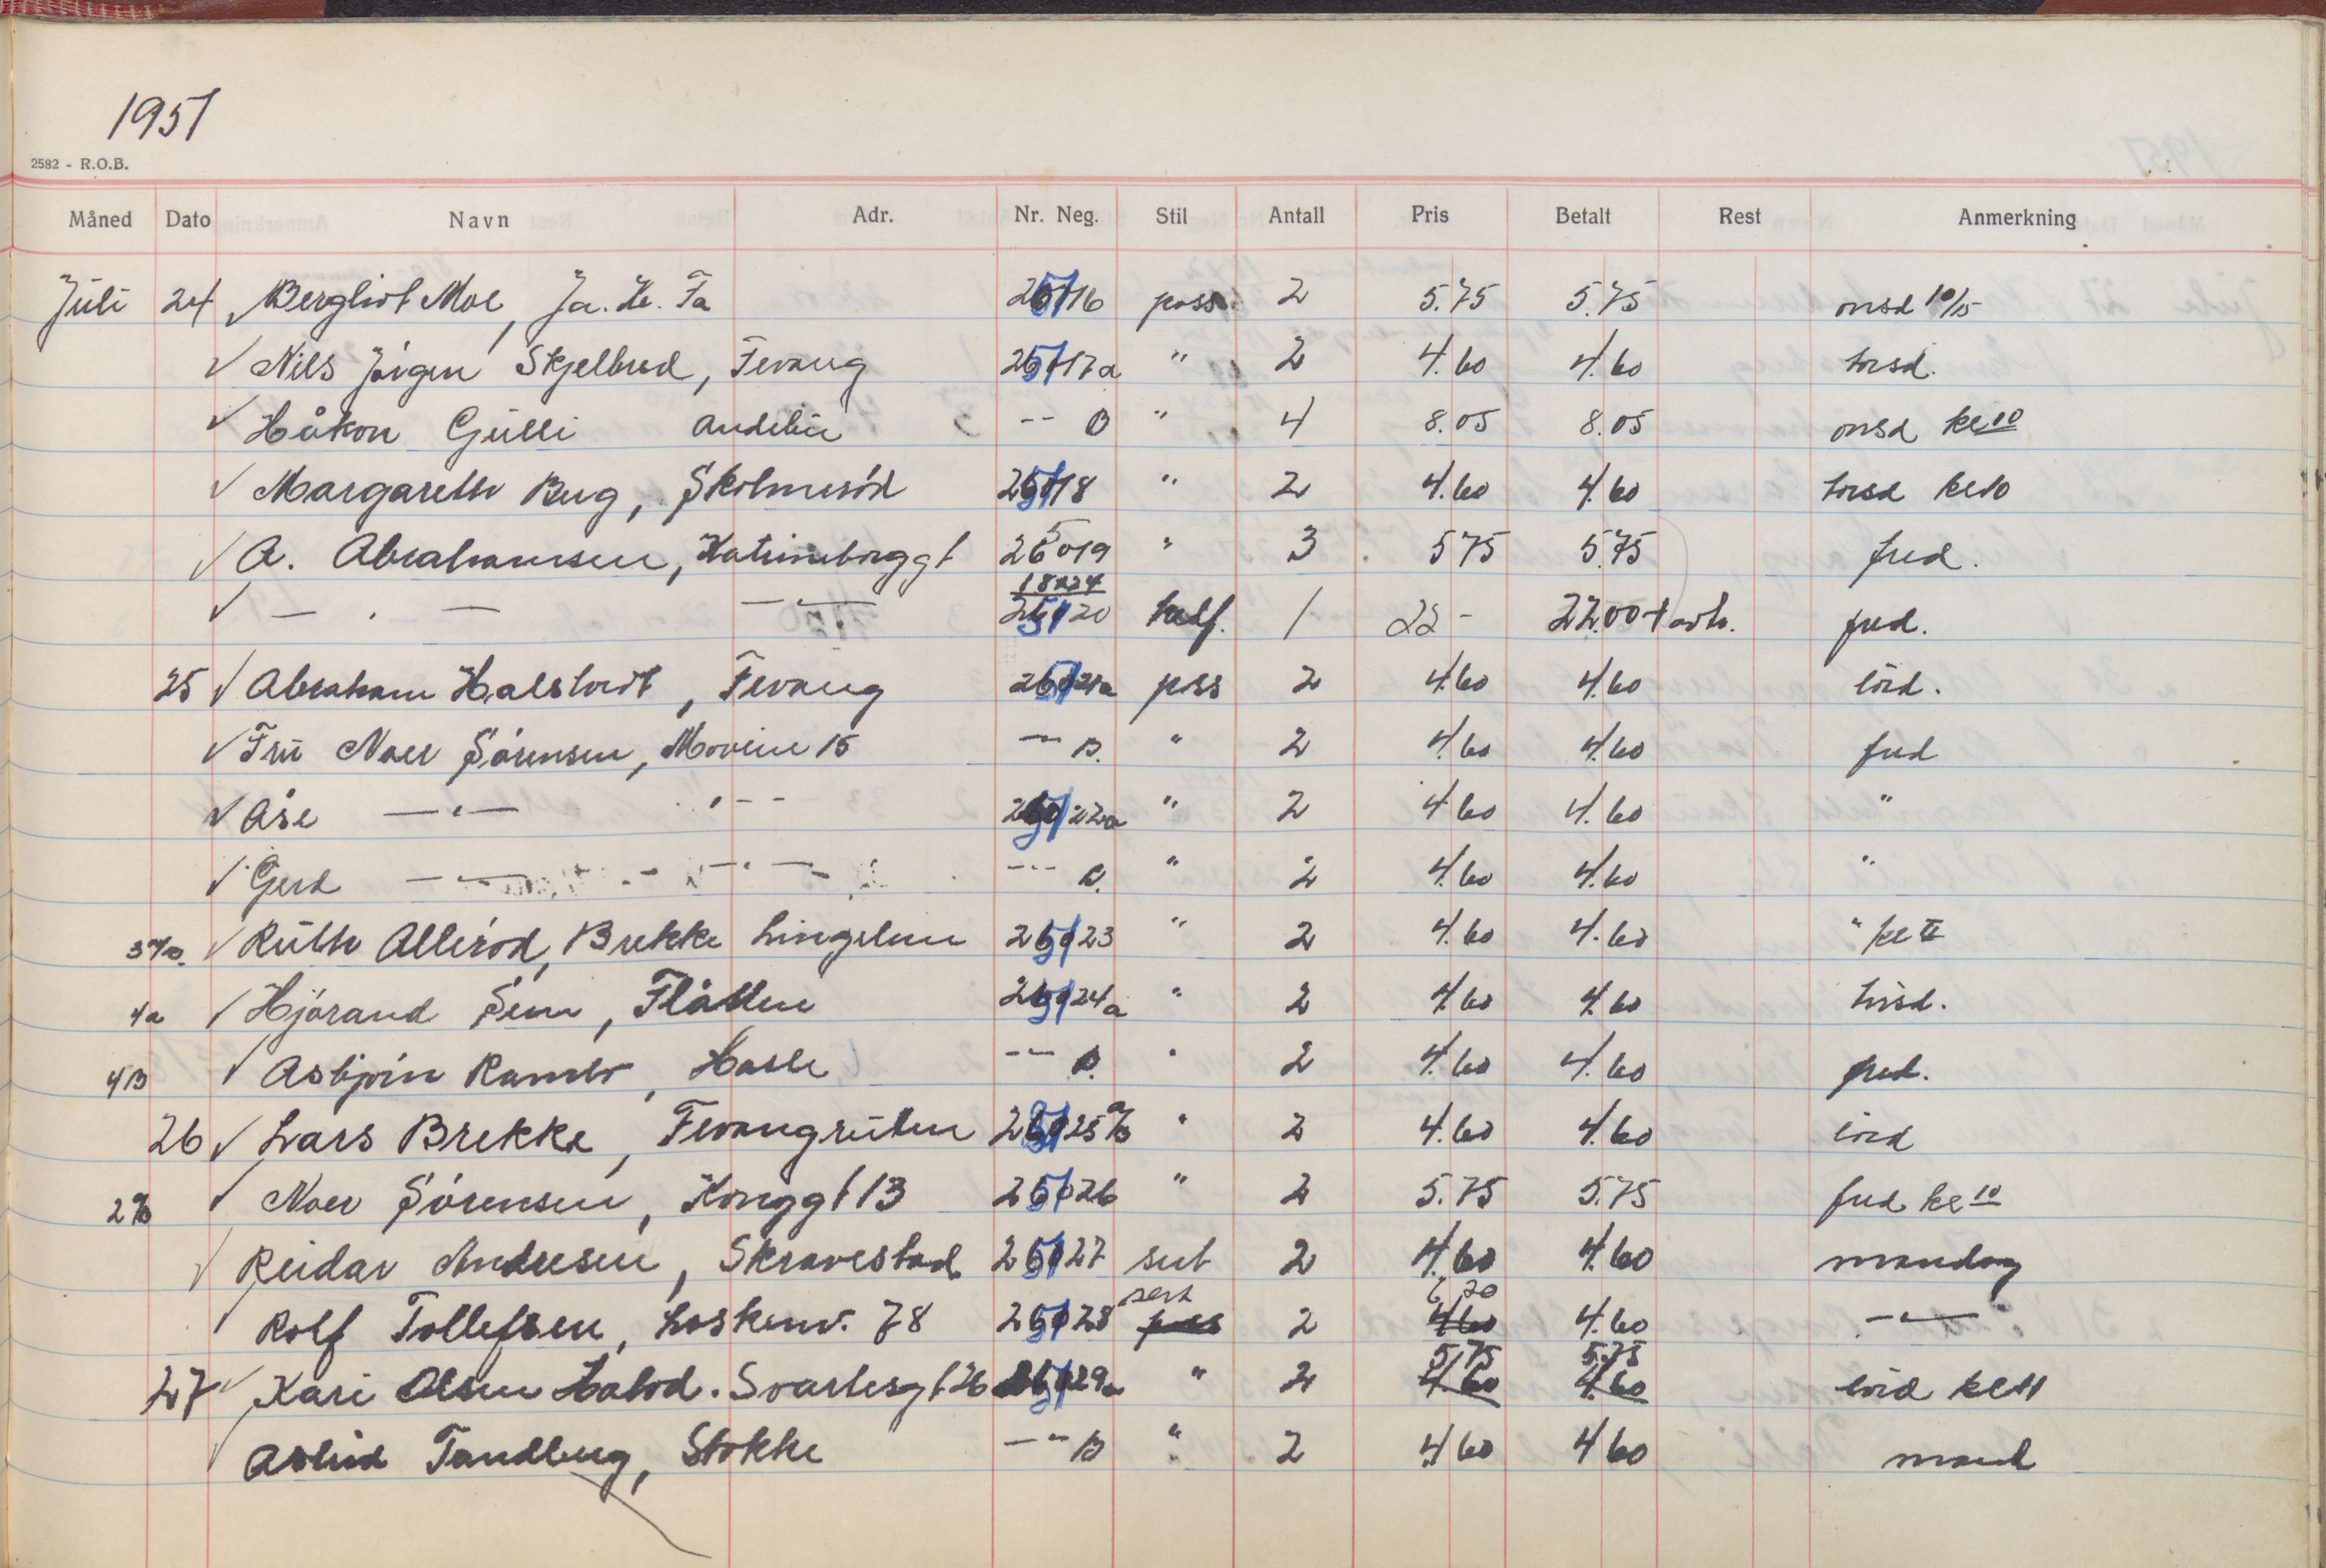 1951
2582 - R.O.B.
Måned Dato Navn Adr. Nr. Neg. Stil Antall Pris Betalt Rest Anmerkning
Juli 24 Bergliot Moe, Ja. Ke. Fa 25116 pass 2 5.75 5.75 onsd
Nils Jörgen Skjelbred, Fevang 25117a " 2 4.60 4.60 torsd.
Håkon Gulli Andebu -- B " 4 8.05 8.05 onsd kl 10
Margareth Berg, Skolmeröd 25118 " 2 4.60 4.60 torsd kl 10
A. Abrahamsen, Katrineborggt 019 " 3 575 5.75 fred.
18x24
— . — — " — 20 half. 1 22 - 22.00 + fred.
25 Abraham Halstvedt, Fevang 21a pass 2 4.60 4.60 lörd.
Fru Noer Sörensen, Moveien 15 -- B. " 2 4.60 4.60 fred
Åse — " — " -- 22a " 2 4.60 4.60 "
Gerd — " — — " — -- B. " 2 4.60 4.60 "
3 a/b Ruth Alleröd, Brekke Lingelem 23 " 2 4.60 4.60 " kl
4a Hjörand Sem, Flåtten 24a " 2 4.60 4.60 tirsd.
4B Asbjörn Ramlo, Hasle -- B. " 2 4.60 4.60 fred.
26 Lars Brekke, Fevangruten 25 a/b " 2 4.60 4.60 lörd
2 a/b Noer Sörensen, Konggt 13 26 " 2 5.75 5.75 fred kl 10
Reidar Andresen, Skravestad 27 2 4.60 4.60 mandag
6,20
Rolf Tollefsen, Loskenv. 78 28 pass 2 4.60 4.60 — " —
5.75 5.75
27 Kari Olsen Svartesgt 26 29a " 2 4.60 4.60 lörd kl 11
Astrid Tandberg, Stokke -- B " 2 4 60 4 60 mand